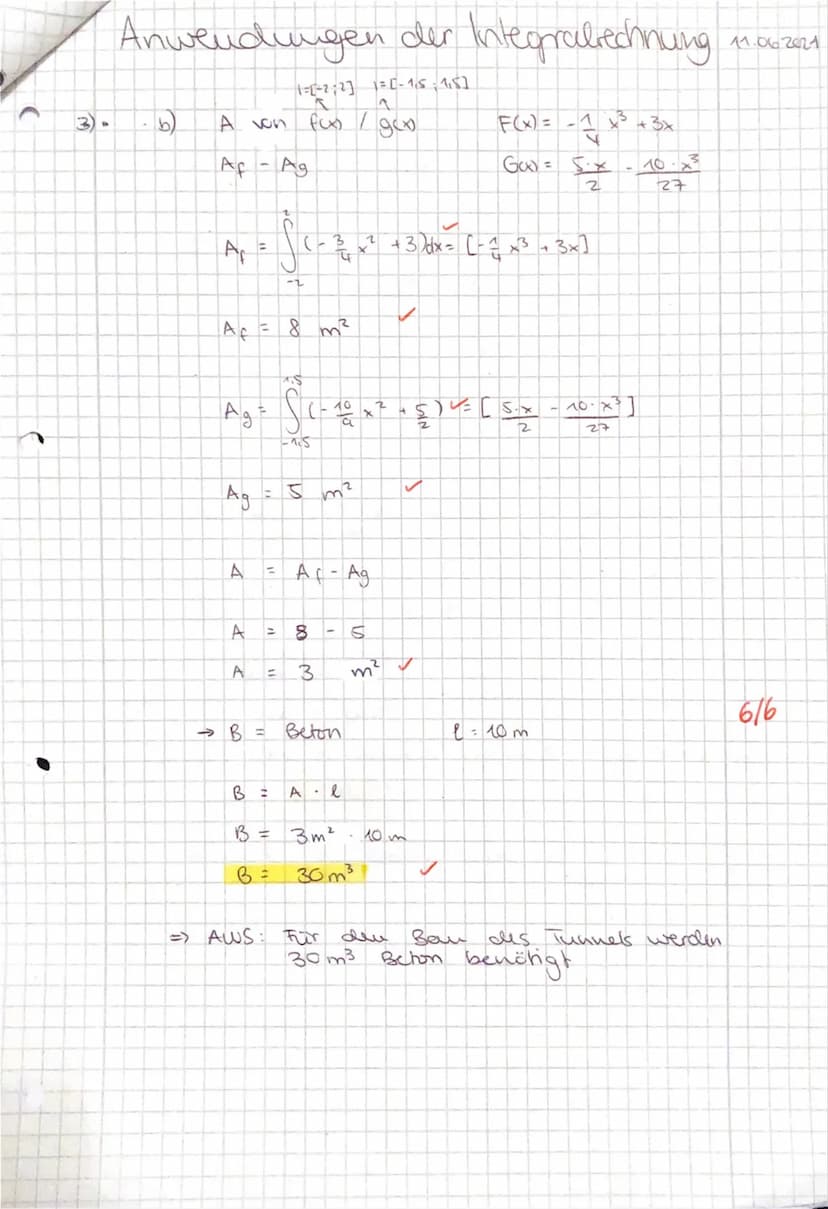 Anwendungen der Integralrechnung 11.06.2021
I=[-2;2] I=[-1,5;1,5]
3) b) A von f(x) / g(x) F(x) = -1/4 x³ + 3x
Af - Ag G(x) = 5·x/2 - 10·x³/27
Af = ∫₋₂² (-3/4 x² + 3)dx = [-1/4 x³ + 3x]
Af = 8 m²
Ag = ∫₋₁,₅¹,⁵ (-10/9 x² + 5/2) = [5·x/2 - 10·x³/27]
Ag = 5 m²
A = Af - Ag
A = 8 - 5
A = 3 m²
6/6
→ B = Beton l = 10 m
B = A · l
B = 3m² · 10 m
B = 30 m³
⇒ AWS: Für den Bau des Tunnels werden
30 m³ Beton benötigt